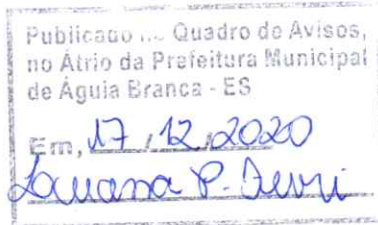 Publicado no Quadro de Avisos,
no Átrio da Prefeitura Municipal
de Águia Branca - ES
Em, 17 / 12 / 2020